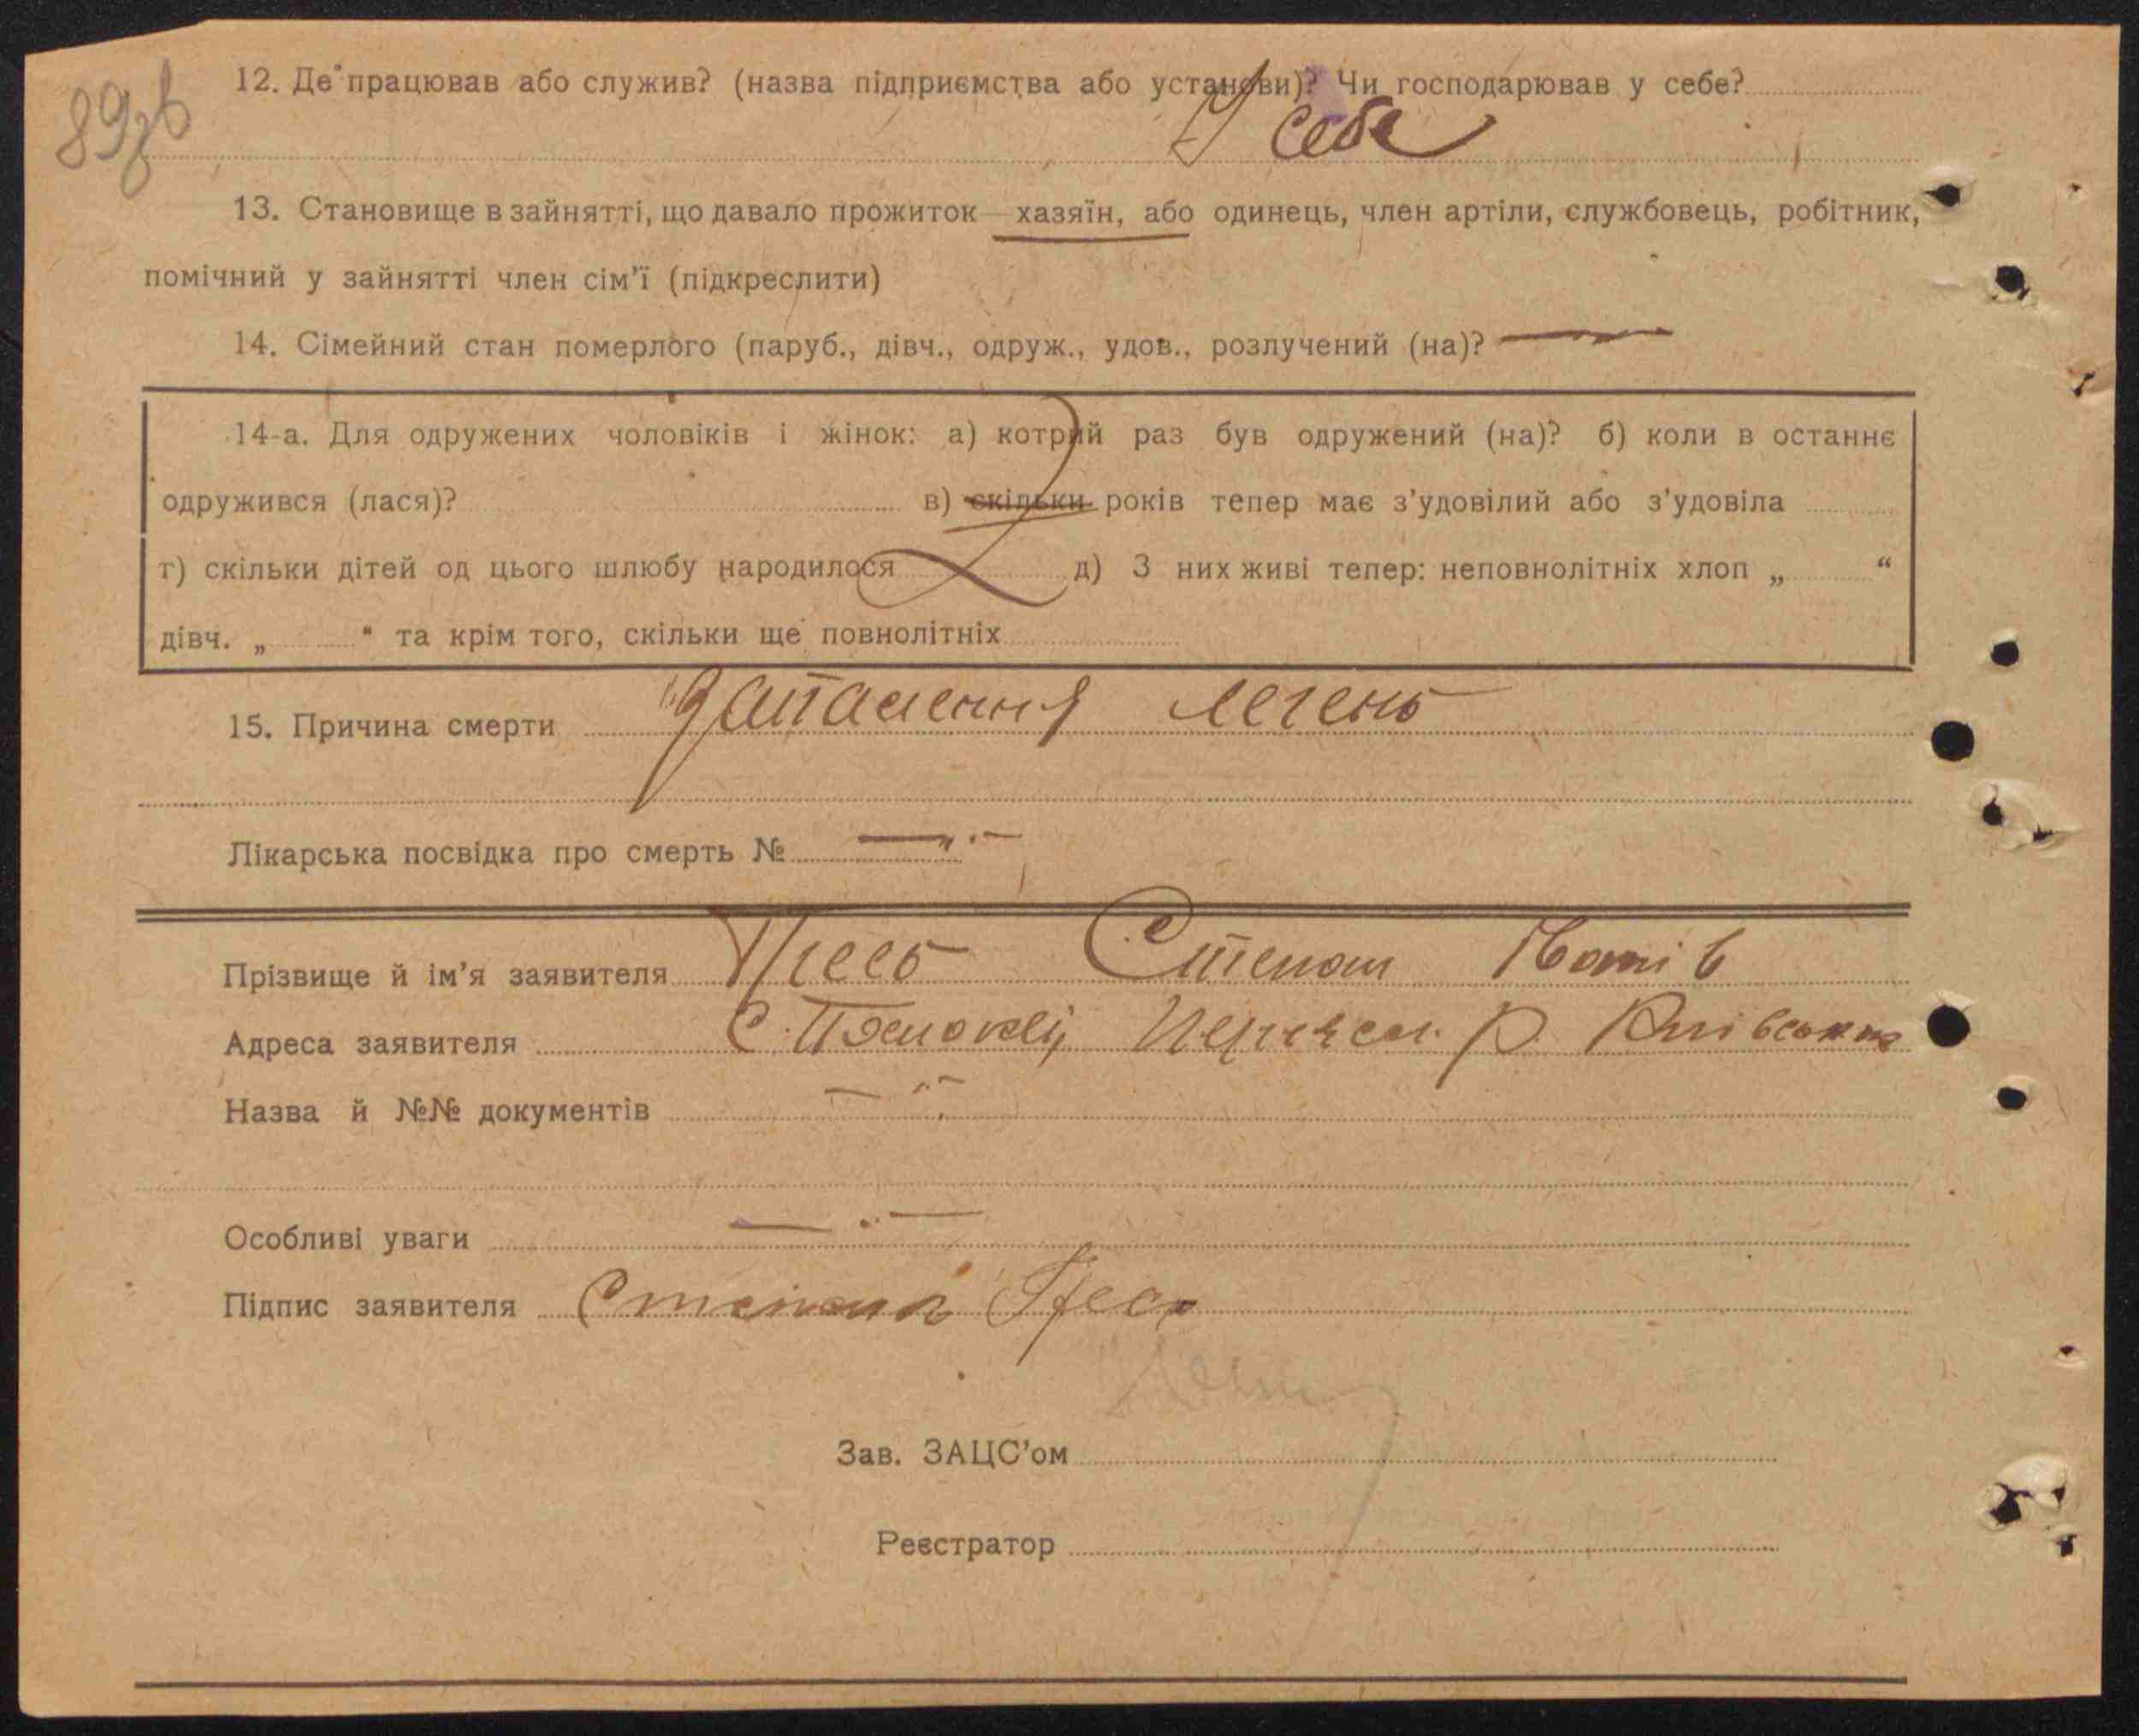 89зв
12. Де працював або служив? (назва підприємства або установи)? Чи господарював у себе?
У себе
13. Становище в зайнятті, що давало прожиток — хазяїн, або одинець, член артіли, службовець, робітник,
помічний у зайнятті член сім'ї (підкреслити)
14. Сімейний стан померлого (паруб., дівч., одруж., удов., розлучений (на)? —
14-а. Для одружених чоловіків і жінок: а) котрий раз був одружений (на)? б) коли в останнє
одружився (лася)? в) скільки років тепер має з'удовілий або з'удовіла
г) скільки дітей од цього шлюбу народилося д) З них живі тепер: неповнолітніх хлоп „ “
дівч. „ “ та крім того, скільки ще повнолітніх
15. Причина смерти Запалення легень
Лікарська посвідка про смерть № —„—
Прізвище й ім'я заявителя Степан
Адреса заявителя С. р. Київськ
Назва й №№ документів —„—
Особливі уваги —„—
Підпис заявителя Степан
Зав. ЗАЦС'ом
Реєстратор